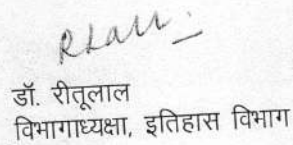 RLall
डॉ. रीतूलाल
विभागाध्यक्षा, इतिहास विभाग